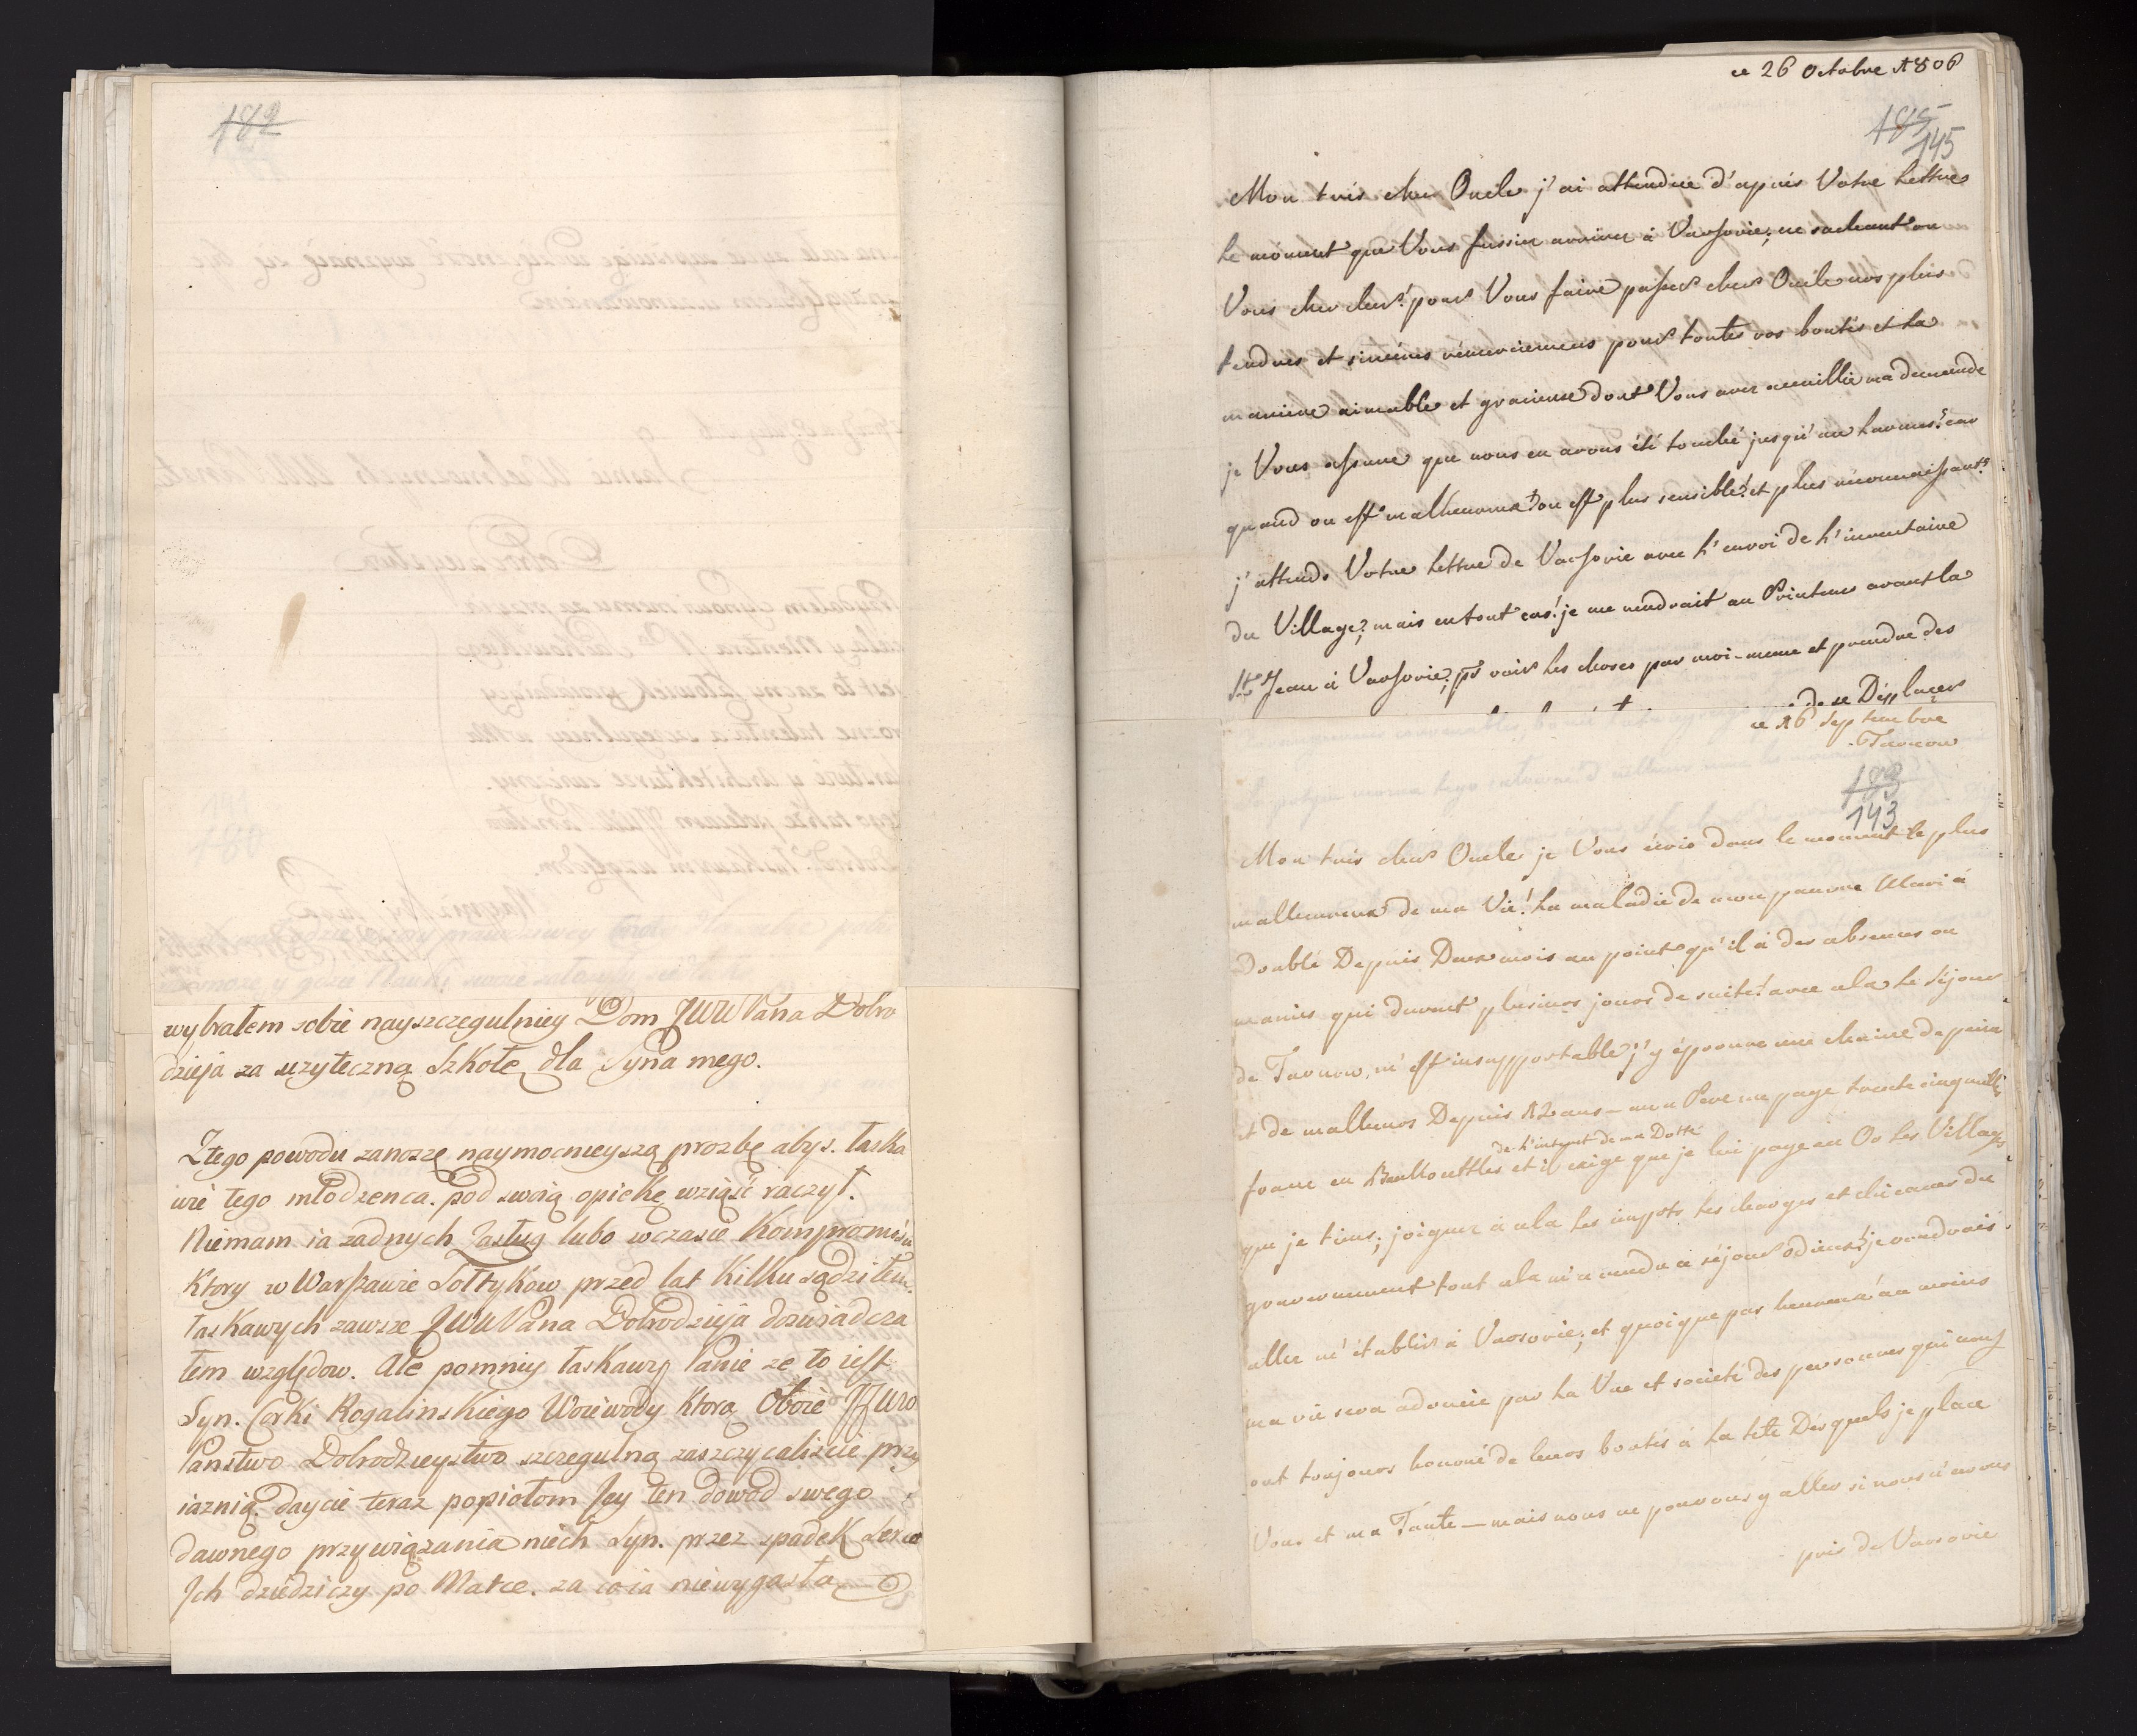 182
wybrałem sobie nayszczegulniey Dom JWW Pana Dobro
dzieja za uzyteczną Szkołę dla Syna mego.
Ztego powodu zanoszę naymocnieyszą prozbę abyś. łaska
wie tego młodzenca. pod swoią opiekę wziąść raczył.
Niemam ia zadnych Zasług lubo wczasie Kompromissu
Ktory w Warszawie Sołtykow przed lat Kilku sądziłem
łaskawych zawsze JWW Pana Dobrodzieja doswiadcza
łem względow. Ale pomniy łaskawy Panie ze to iest
Syn. Corki Rogalinskiego Woiewody ktorą Oboie JJWW
Panstwo Dobrodzieystwo szczegulną zaszczycaliscie przy
iaznią. daycie teraz popiołom Jey ten dowod swego
dawnego przywiązania niech Syn. przez spadek serca
Jch dziedziczy po Matce. za co ia niewygasłą
ce 26 Octobre 1806
185
145
Mon trés cher Oncle j'ai attendue d'aprés Votre Lettre
Le moment que Vous fussiez arrivez á Varsovie; ne sachant ou
Vous chercher! pour Vous faire passer cher Oncle nos plus
tendres et sincéres rémerciemens pour toutes vos bontés et La
maniere aimable et gracieuse dont Vous avez acceuillie ma demende
je Vous assure que nous en avons été touché jusqu'au Larmes! car
quand on est malheureux! on est plus sensible! et plus réconnaissant!
j'attends Votre Lettre de Varsovie avec L'envoi de L'inventaire
du Village; mais en tout cas! je me rendrait au Printems avant la
St Jean á Varsovie; pr voir Les choses par moi-meme et prendre des
de se Déplacer
ce 16 Septembre
Tarnow
183
143
Mon trés cher Oncle je Vous écris dans le moment le plus
malheureux de ma Vie! La maladie de mon pauvre Mari á
Doublé Depuis Deux mois au point qu'il á des absences ou
manies qui durent plusieurs jours de suite! avec cela Le Séjour
de Tarnow, m'est insupportable; j'y éprouve une chaine de peine
et de malheurs Depuis 12 ans — mon Pere me paye trente cinq mille
de L'interet de ma Dotte
et il exige que je lui paye en Or Les Villages
que je tiens; joignez á cela Les impots Les charges et chicanes du
gouvernement tout cela m'a rendu ce séjour odieux! je voudrais
aller m'établir á Varsovie; et quoique pas heureux! au moins
ma vie sera adoucie par La Vue et societé des personnes qui nous
ont toujours honoré de leurs bontés á La tete Désquels je place
Vous et ma Tante — mais nous ne pouvons y aller si nous n'avons
prés de Varsovie